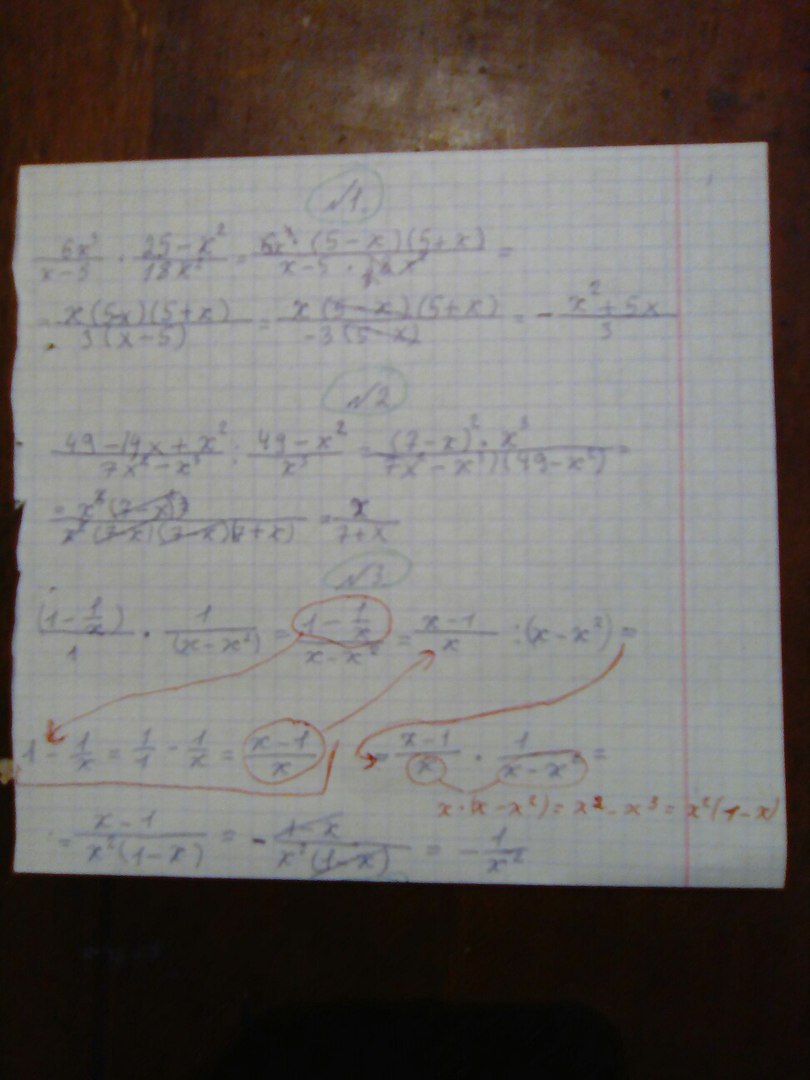 √1.
6x³/(x-5) · (25-x²)/(18x²) = (6x³·(5-x)(5+x))/(x-5·18x²) =
= (x(5-x)(5+x))/(3(x-5)) = (x(5-x)(5+x))/(-3(5-x)) = - (x²+5x)/3
√2
(49-14x+x²)/(7x²-x³) : (49-x²)/x³ = ((7-x)²·x³)/(7x²-x³)(49-x²) =
= x³(7-x)²/(x²(7-x)(7-x)(7+x)) = x/(7+x)
√3
(1-1/x)/1 · 1/(x-x²) = (1-1/x)/(x-x²) = (x-1)/x : (x-x²) =
1 - 1/x = 1/1 - 1/x = (x-1)/x
= (x-1)/x · 1/(x-x²) =
x·(x-x²) = x²-x³ = x²(1-x)
= (x-1)/(x²(1-x)) = - (1-x)/(x²(1-x)) = - 1/x²